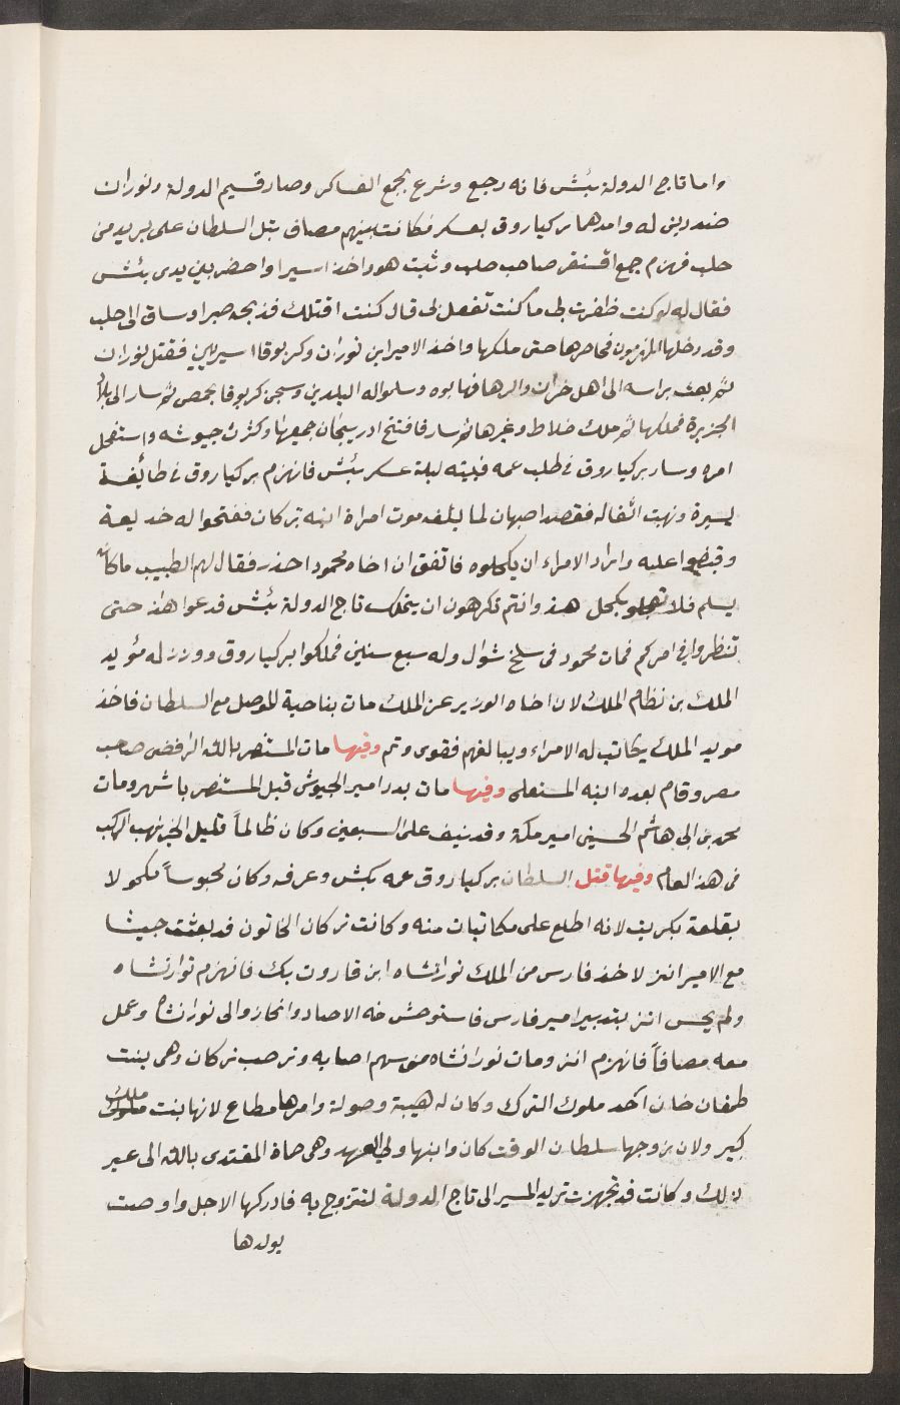 واما تاج الدولة تتش فانه رجع وشرع بجمع العساكر وصار قسيم الدولة وبوزان
ضددين له وامدهما بركياروق بعسكر فكانت بينهم مصاف بتل السلطان على بريد من
حلب فهزم جمع اقسنقر صاحب حلب وثبت هو واخذ اسيرا واحضر بين يدى تتش
فقال له لو كنت ظفرت بى ما كنت تفعل بى قال كنت اقتلك فذبحه صبرا وساق الى حلب
وقد دخلها المنهزمون فحاصرها حتى ملكها واخذ الامير ابن بوزان وكربوقا اسيرين فقتل بوزان
ثم بعث براسه الى اهل حران والرها فهابوه وسلموا له البلدين وسجن كربوقا بحمص ثم سار الى بلاد
الجزيرة فملكها ثم ملك خلاط وغيرها ثم سار فافتتح ادربيجان جميعها وكثرت جيوشه واستفحل
امره وسار بركياروق فى طلب عمه فبيته ليلة عسكر تتش فانهزم بركياروق فى طائفة
يسيرة ونهبت اثقاله فقصد اصبهان لما بلغه موت امراة ابيه تركان ففتحوا له خديعة
وقبضوا عليه واراد الامراء ان يكحلوه فاتفق ان اخاه محمودا حذر فقال لهم الطبيب ما كانه
يسلم فلا تعجلو بكحل هذ وانتم تكرهون ان يتملك تاج الدولة تتش فدعوا هذ حتى
تنظروا فى امركم فمات محمود فى سلخ شوال وله سبع سنين فملكوا بركياروق ووزر له مؤيد
الملك بن نظام الملك لان اخاه الوزير عز الملك مات بناحية الموصل مع السلطان فاخذ
مويد الملك يكاتب له الامراء ويبالغهم فقوى وتم وفيها مات المستنصر بالله الرافضى صاحب
مصر وقام بعده ابنه المستعلى وفيها مات بدر امير الجيوش قبل المستنصر باشهر ومات
محمد بن ابى هاشم الحسينى امير مكة وقد نيف على السبعين وكان ظالماً قليل الخير نهب الركب
فى هذ العام وفيها قتل السلطان بركياروق عمه تكش وغرقه وكان محبوساً مكحولا
بقلعة تكريت لانه اطلع على مكاتبات منه وكانت تركان الخاتون قد بعثت جيشا
مع الامير انز لاخذ فارس من الملك تورانشاه ابن قاروت بك فانهزم تورانشاه
ولم يحسن انز بتدبير امير فارس فاستوحش منه الاجناد وانحازوا الى تورانشاه وعمل
معه مصافاً فانهزم انز ومات تورانشاه من سهم اصابه وترحب تركان وهى بنت
طمغان خان احد ملوك الترك وكان له هيبة وصولة وامرها مطاع لانها بنت ملك
كبير ولان زوجها سلطان الوقت كان وابنها ولى العهد وهى حماة المقتدى بالله الى غير
ذلك وكانت قد تجهزت تريد المسير الى تاج الدولة لتتزوج به فادركها الاجل واوصت
بولدها